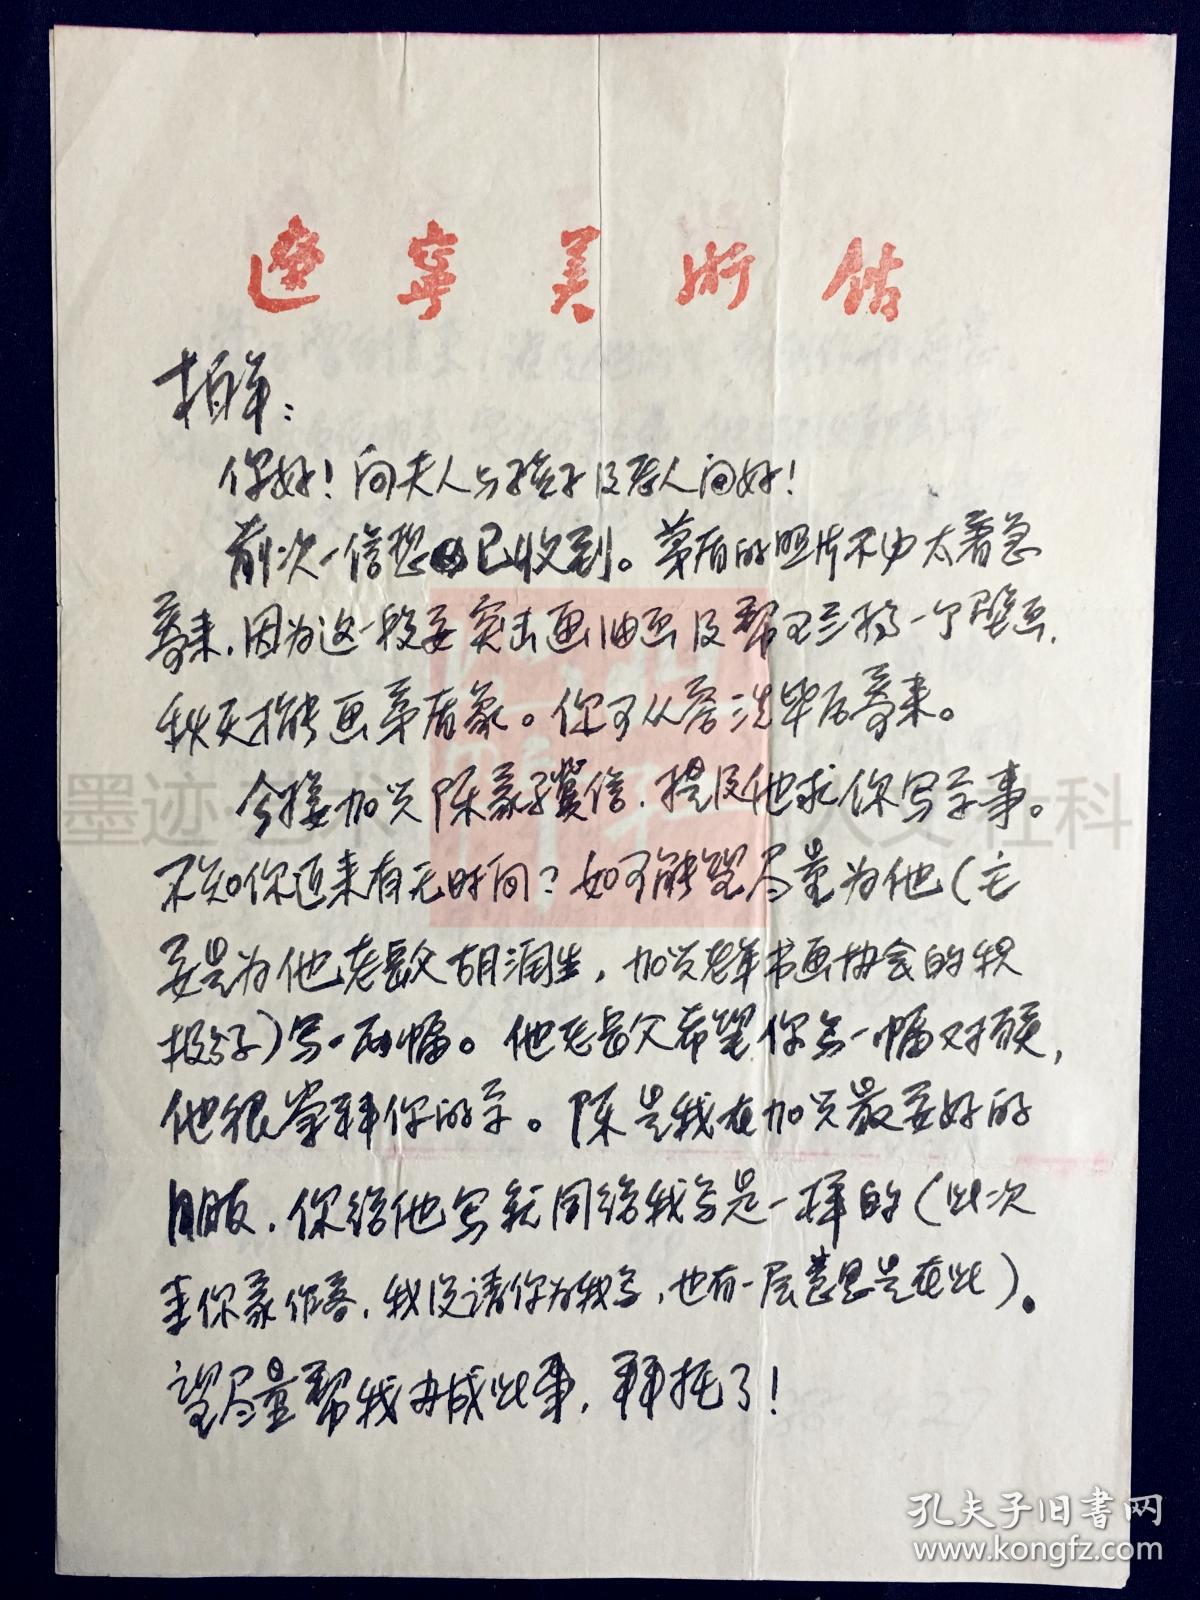 遼寧美術館
柏年：
你好！向夫人与孩子及老人问好！
前次一信想已收到。茅盾的照片不必太着急
寄来，因为这一段要突击画油画及帮王兰搞一个壁画，
秋天才能画茅盾象。你可从容洗毕后寄来。
今接加兴陈家骥信，提及他求你写字事。
不知你近来有无时间？如可能望尽量为他（主
要是为他老岳父胡润生，加兴老年书画协会的积
极分子）写一两幅。他老岳父希望你写一幅对联，
他很崇拜你的字。陈是我在加兴最要好的
朋友，你给他写就同给我写是一样的（此次
来你家作客，我没请你为我写，也有一层意思是在此）。
望尽量帮我办成此事，拜托了！
墨迹
人文社科
孔夫子旧书网
www.kongfz.com